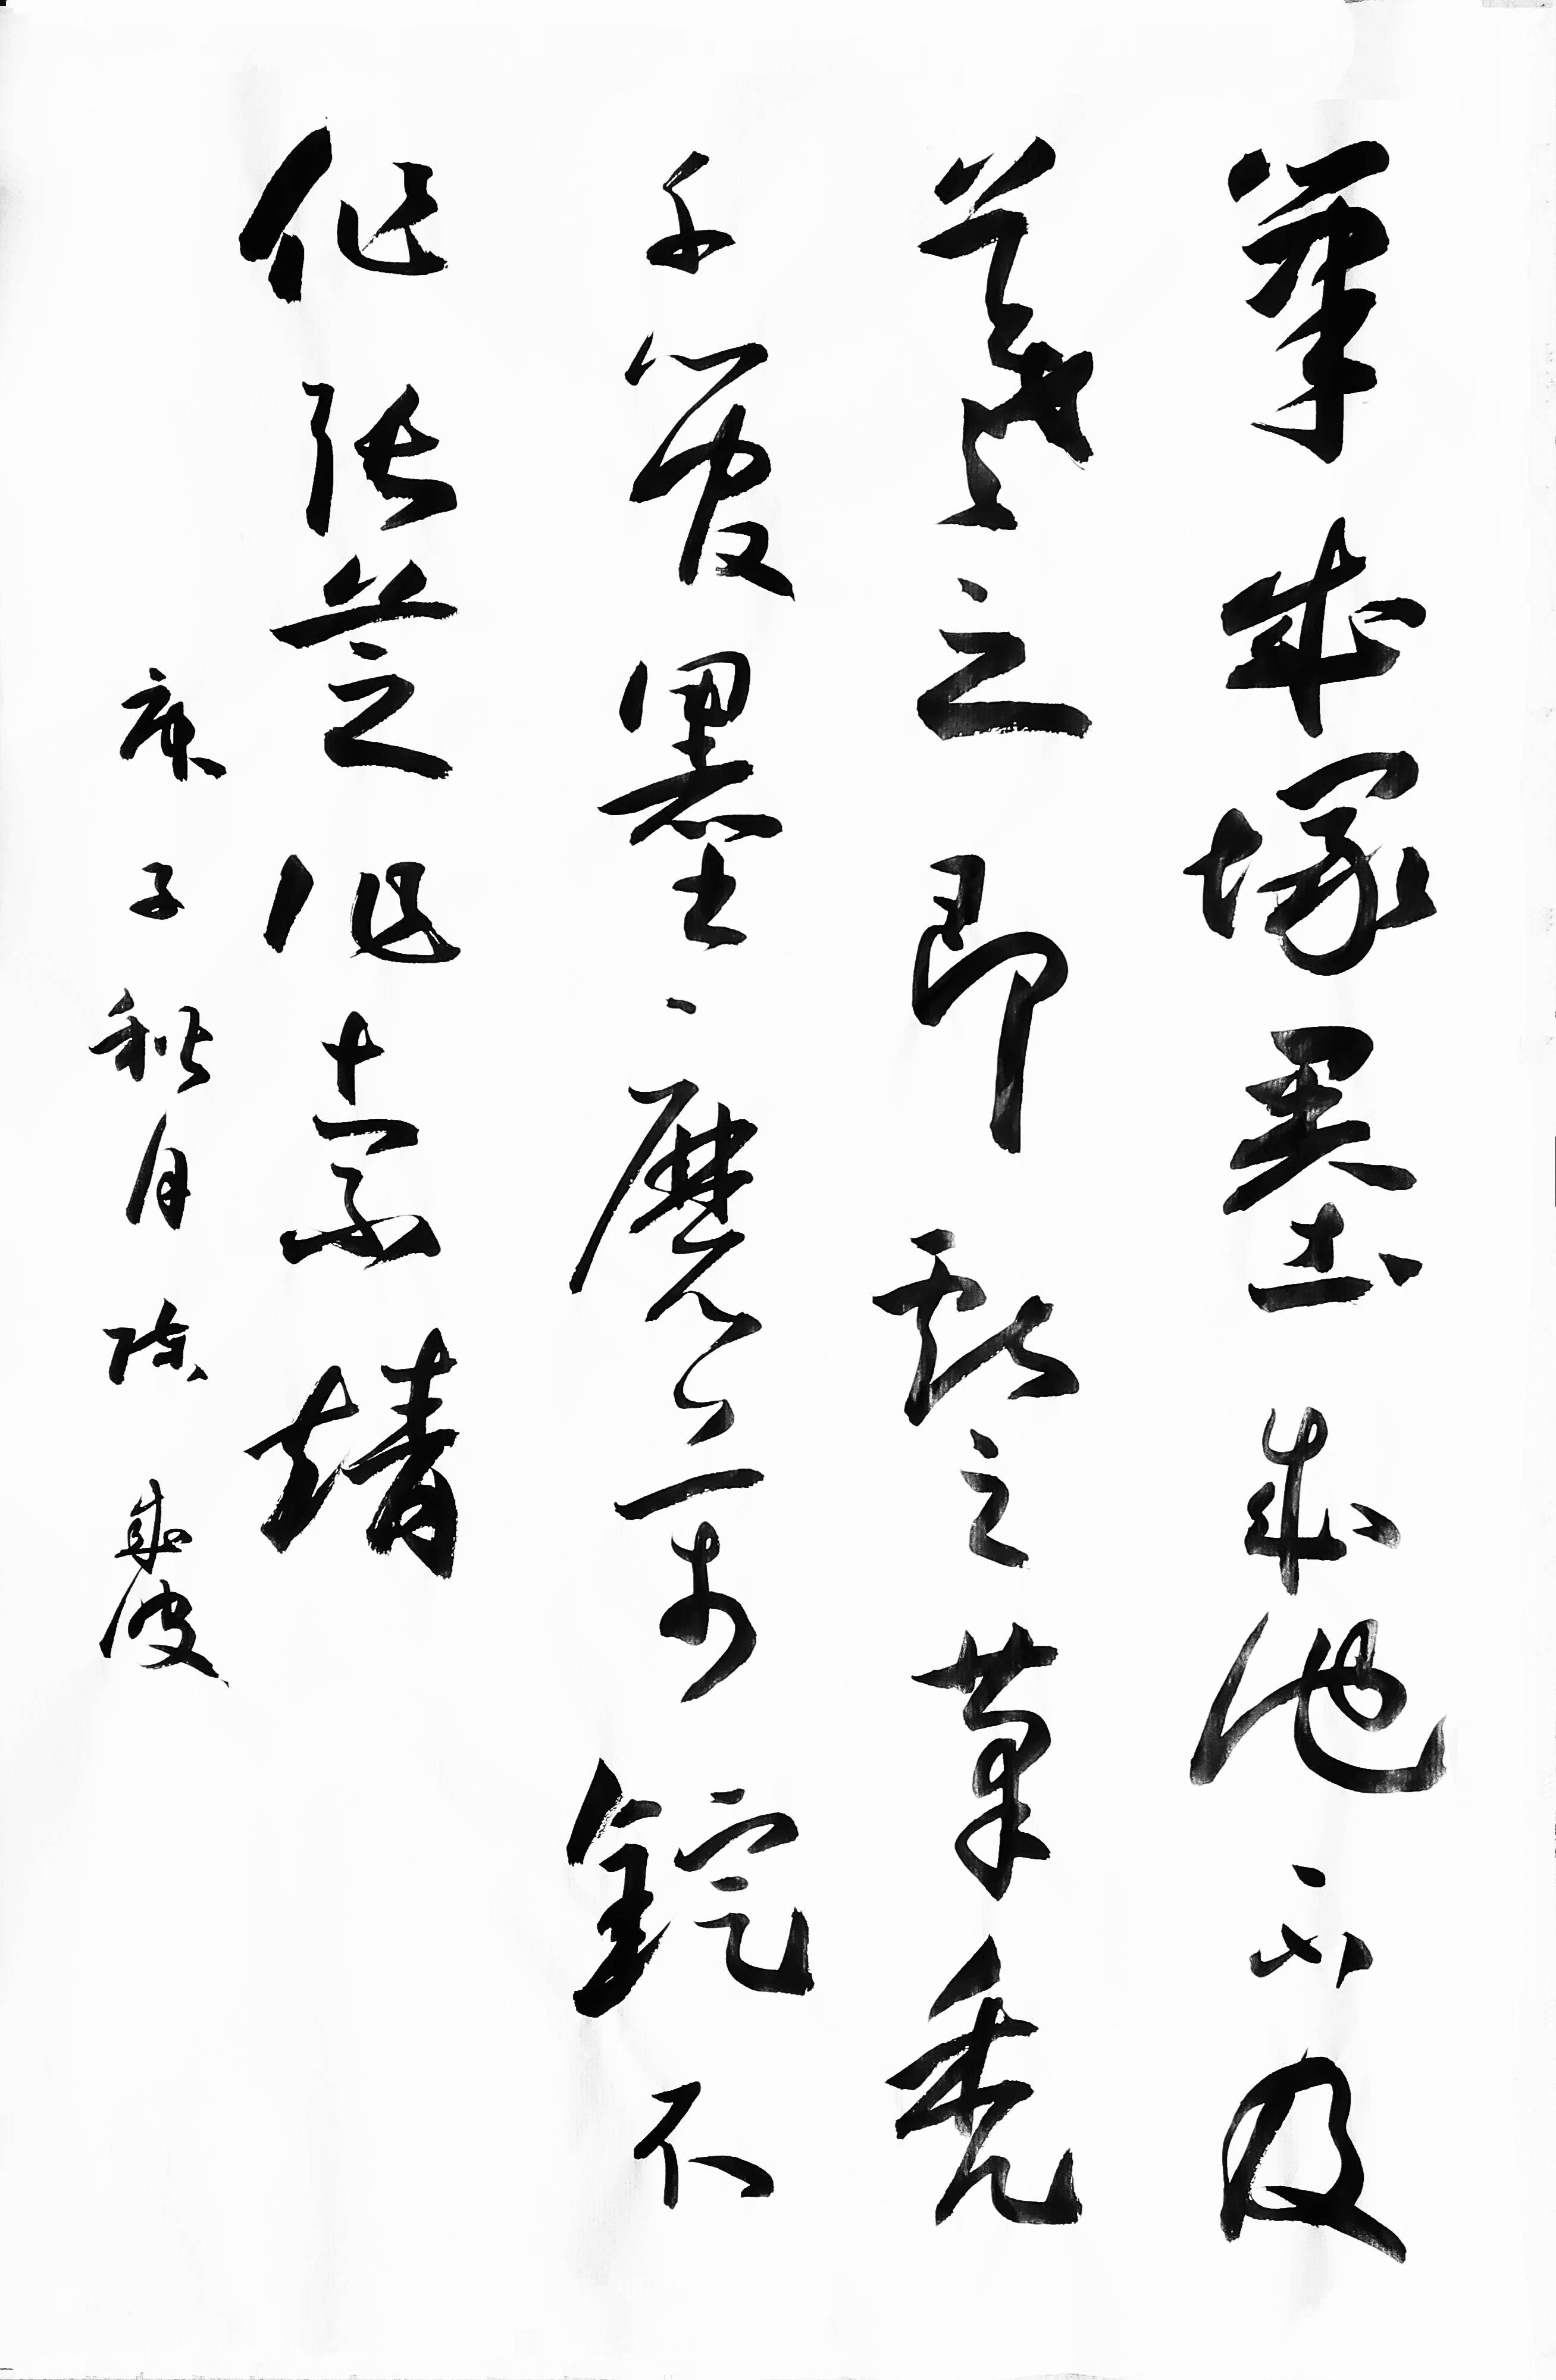 筆成塚墨成池不及
羲之即獻之筆秃
千管墨磨萬鋌不
作張芝作索靖
庚子秋月陈